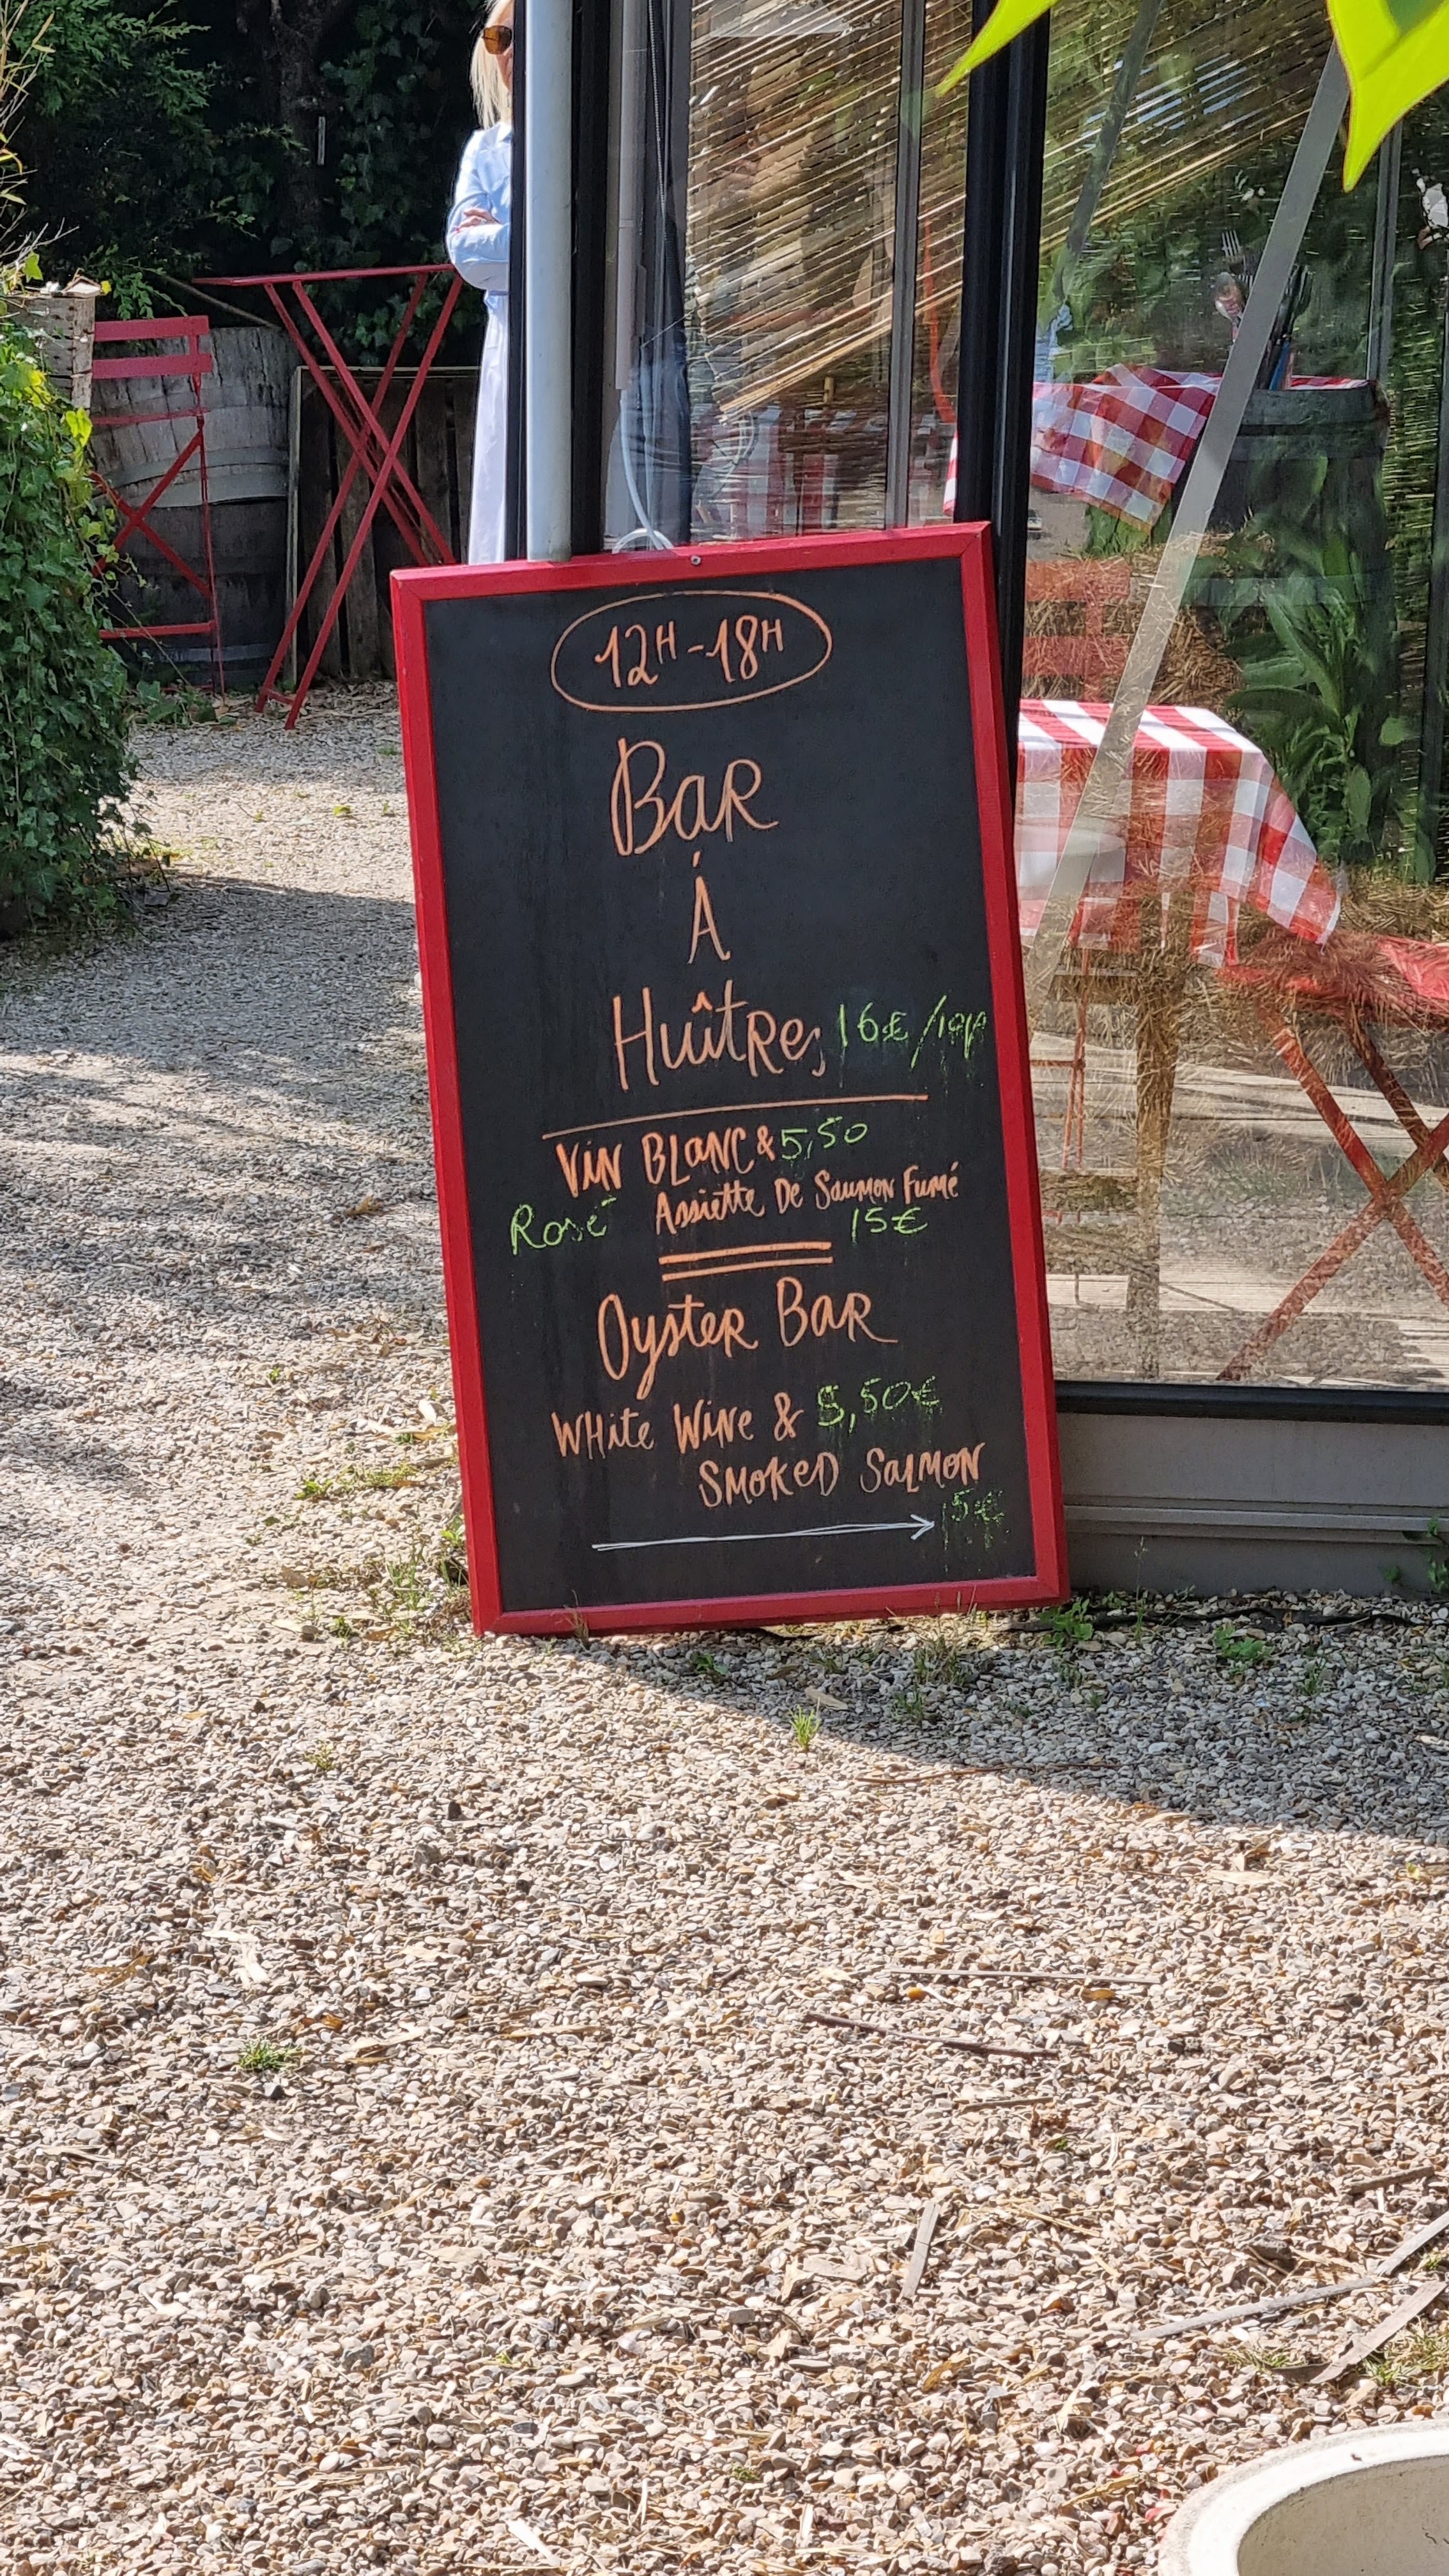 12H-18H
Bar
À
Huîtres 16€/
Vin Blanc & 5,50
Rosé Assiette De Saumon Fumé
15€
Oyster Bar
White Wine & 5,50€
Smoked Salmon
15€